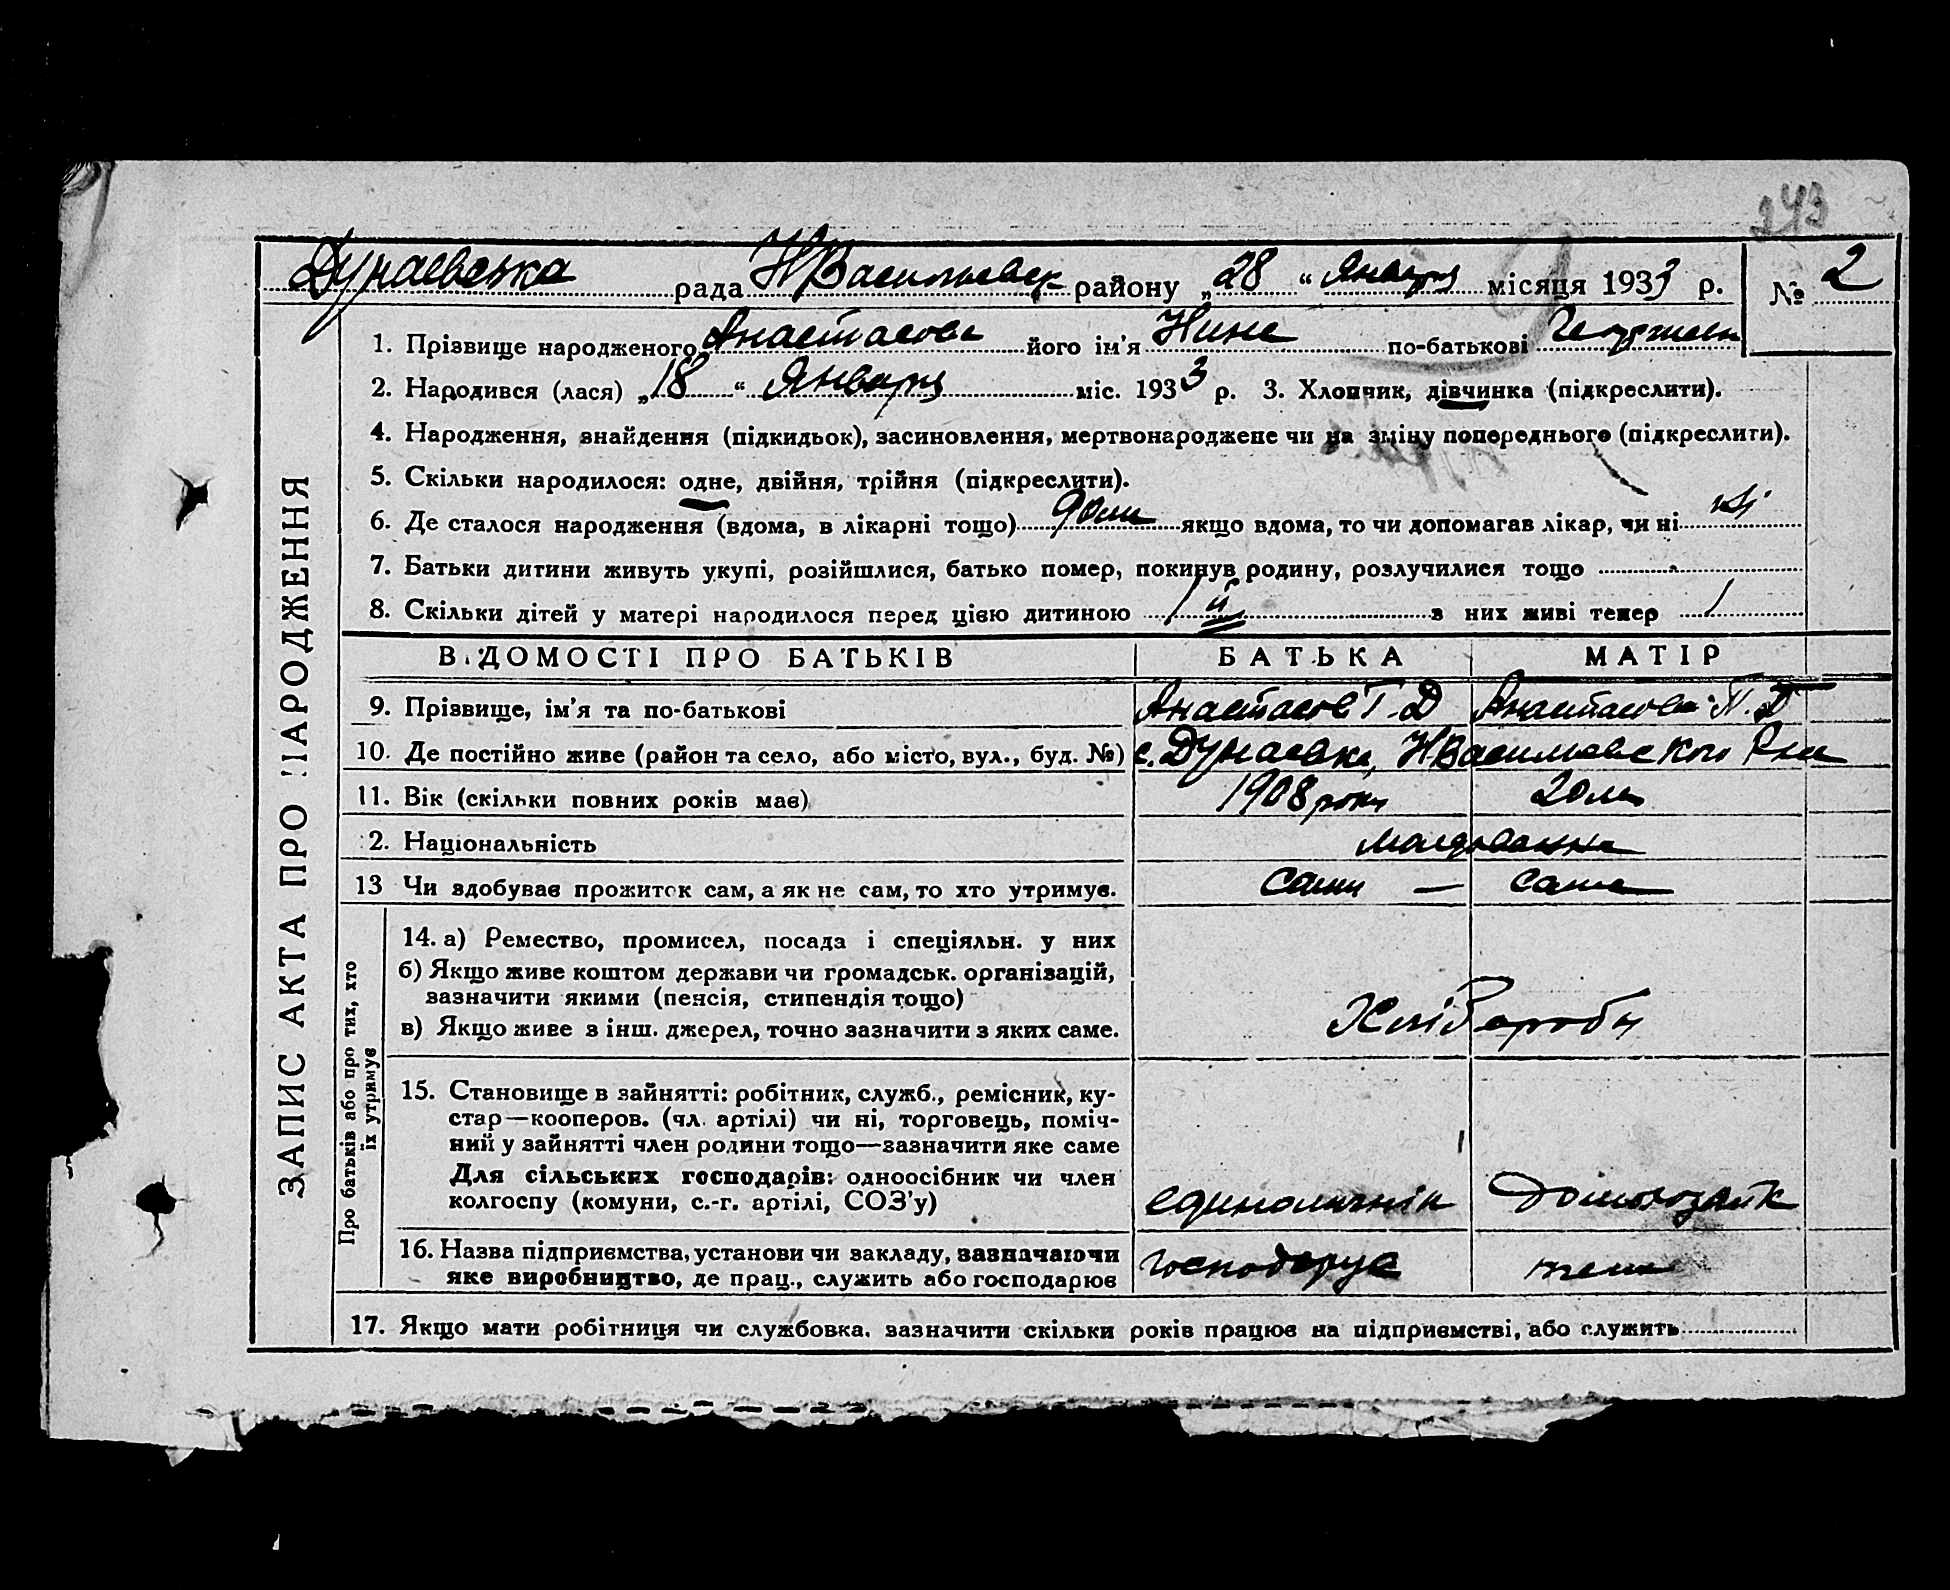 243
Дунаевска рада НВасильевск району „28 “ Января місяця 1933 р. № 2
ЗАПИС АКТА ПРО НАРОДЖЕННЯ
1. Прізвище народженого Анастасова його ім'я Нина по-батькові
2. Народився (лася) „18 “ Января міс. 1933 р. 3. Хлопчик, дівчинка (підкреслити).
4. Народження, знайдення (підкидьок), засиновлення, мертвонароджене чи на зміну попереднього (підкреслити).
5. Скільки народилося: одне, двійня, трійня (підкреслити).
6. Де сталося народження (вдома, в лікарні тощо) якщо вдома, то чи допомагав лікар, чи ні ні
7. Батьки дитини живуть укупі, розійшлися, батько помер, покинув родину, розлучилися тощо
8. Скільки дітей у матері народилося перед цією дитиною 1 й з них живі тепер 1
ВІДОМОСТІ ПРО БАТЬКІВ БАТЬКА МАТІР
9. Прізвище, ім'я та по-батькові Анастасов Г. Д Анастасова П. Д
10. Де постійно живе (район та село, або місто, вул., буд. №) с. Дунаевка, НВасильевского Р-на
11. Вік (скільки повних років має) 1908 роки 20 лет
2. Національність молдованне
13 Чи здобуває прожиток сам, а як не сам, то хто утримує. сами — сама
Про батьків або про тих, хто
їх утримує
14. а) Ремество, промисел, посада і спеціяльн. у них
б) Якщо живе коштом держави чи громадськ. організацій,
зазначити якими (пенсія, стипендія тощо)
в) Якщо живе з інш. джерел, точно зазначити з яких саме. Хліборобы
15. Становище в зайнятті: робітник, служб., ремісник, ку-
стар—кооперов. (чл. артілі) чи ні, торговець, поміч-
ний у зайнятті член родини тощо—зазначити яке саме
Для сільських господарів: одноосібник чи член
колгоспу (комуни, с.-г. артілі, СОЗ'у) единоличнік домохозяйк
16. Назва підприємства, установи чи закладу, зазначаючи
яке виробництво, де прац., служить або господарює господарує
17. Якщо мати робітниця чи службовка, зазначити скільки років працює на підприємстві, або служить